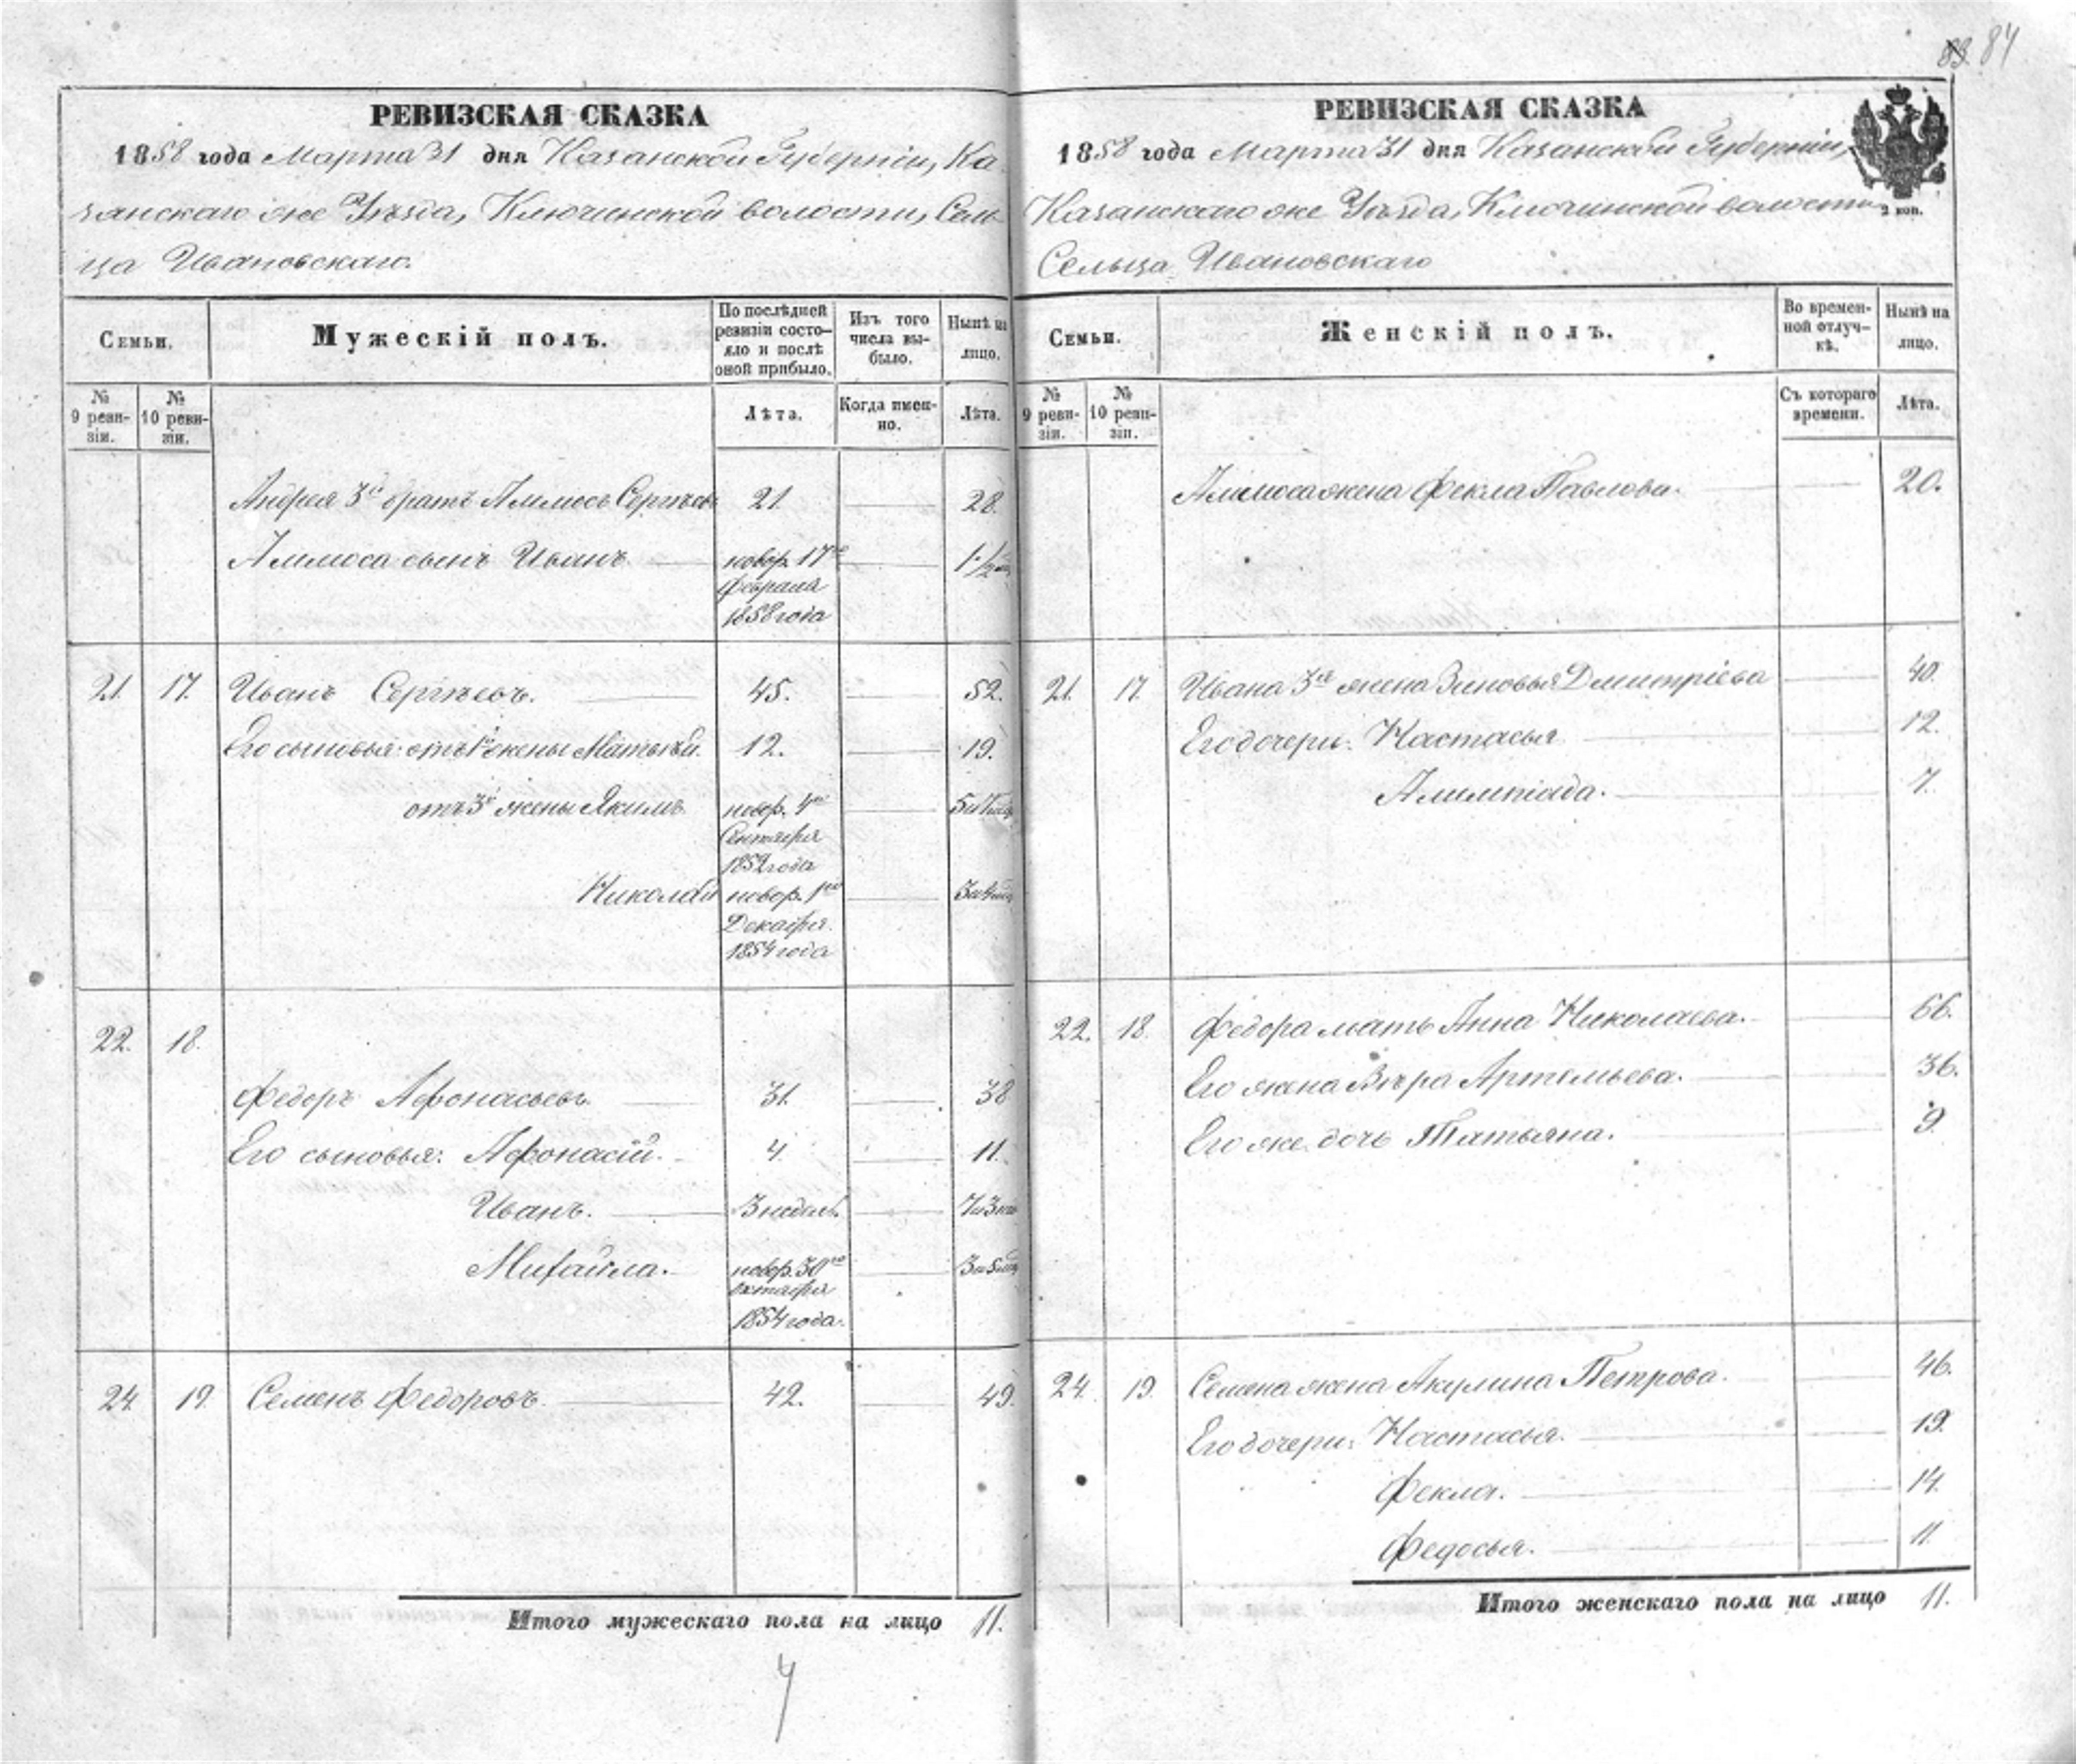 83. 84
РЕВИЗСКАЯ СКАЗКА
1858 года Марта 31 дня Казанской Губерніи, Ка-
занскаго же Уѣзда, Ключинской волости, Сель-
ца Ивановскаго.
Семьи.
Мужескій полъ.
По послѣдней ревизіи состо-яло и послѣ оной прибыло.
Изъ того числа вы-было.
Нынѣ на лицо.
№ 9 реви-зіи.
№ 10 реви-зіи.
Лѣта.
Когда имен-но.
Лѣта.
Андрея 3й братъ Алимпъ Сергѣевъ 21. 28.
сынъ Иванъ новор. 17го
Февраля
1858 года
21. 17. Иванъ Сергѣевъ. 45. 52.
Его сыновья: отъ 1й жены Матвѣй. 12. 19.
отъ 3й жены Якимъ новор. 4го
Сентября
1852 года
Николай новор. 1го
Декабря.
1854 года
22. 18.
Федоръ Афонасьевъ 31. 38
Его сыновья: Афонасій. 4. 11.
Иванъ. 3 недѣль.
Михайла. новор. 30го
Октября
1854 года.
24. 19. Семенъ Федоровъ 42. 49.
Итого мужескаго пола на лицо 11.
4
РЕВИЗСКАЯ СКАЗКА
1858 года Марта 31 дня Казанской Губерніи,
Казанскаго же Уѣзда, Ключинской волости
Сельца Ивановскаго
2 коп.
Семьи.
Женскій полъ.
Во времен-ной отлуч-кѣ.
Нынѣ на лицо.
№ 9 реви-зіи.
№ 10 реви-зіи.
Съ котораго времени.
Лѣта.
жена Фекла Павлова. 20.
21. 17. Ивана 3я жена Зиновья Дмитріева 40.
Его дочери: Настасья 12.
Алимпіада. 7.
22. 18. Федора мать Анна Николаева. 66.
Его жена Вѣра Артемьева. 36.
Его же дочь Татьяна. 9.
24. 19. Семена жена Акулина Петрова. 46.
Его дочери: Настасья. 19.
Фекла. 14.
Федосья. 11.
Итого женскаго пола на лицо 11.